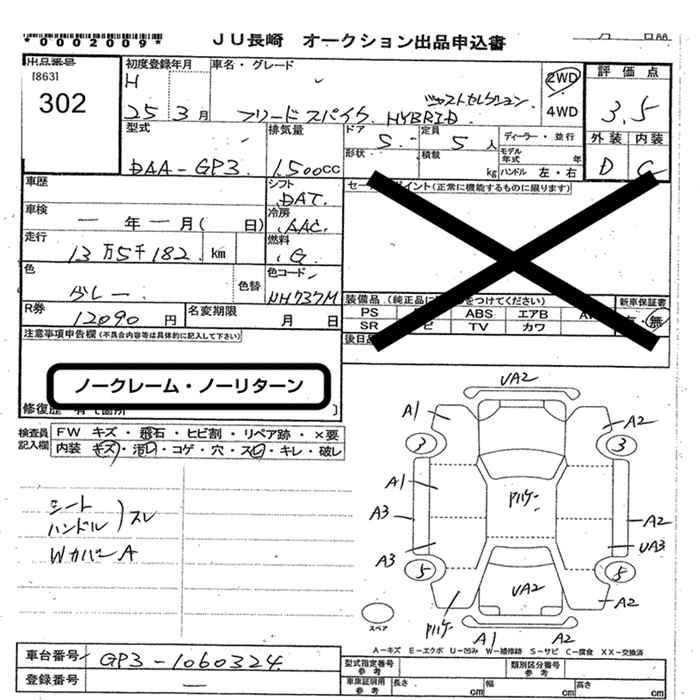 *0002009*
JU長崎 オークション出品申込書
出品番号
[863]
302
初度登録年月
H 25 3月
車名・グレード
フリードスパイク HYBRID ジャストセレクション
2WD
4WD
評価点
3.5
外装 内装
D C
型式
DAA-GP3
排気量
1,500cc
ドア
5
形状
定員
5人
積載
kg
ディーラー・並行
モデル年式 年
ハンドル 左・右
車歴
シフト
DAT
セールスポイント(正常に機能するものに限ります)
車検
ー年ー月( 日)
冷房
AAC
走行
13万5千182 km
燃料
G
色
グレー
色替
色コード
NH737M
R券
12090円
名変期限
月 日
装備品
PS
ABS エアB
SR
TV カワ
新車保証書
無
注意事項申告欄(不具合内容等は具体的に記入して下さい)
ノークレーム・ノーリターン
修復歴
検査員記入欄
FW キズ・飛石・ヒビ割・リペア跡・×要
内装 キズ・汚レ・コゲ・穴・スレ・キレ・破レ
シート
ハンドル )スレ
Wカバー A
UA2
A1
A2
3
3
A1
A3
A3
Pハゲ
A2
UA3
5
5
UA2
A2
Pハゲ
A1
A2
スペア
A-キズ E-エクボ U-凹み W-補修跡 S-サビ C-腐食 XX-交換済
車台番号
GP3-1060324
登録番号
ー
型式指定番号
参考
類別区分番号
参考
車庫証明用
参考
長さ cm
幅 cm
高さ cm